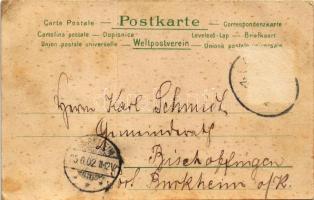 Carte Postale — Postkarte — Correspondenzkarte
Cartolina postale — Dopisnica Levelező-Lap — Briefkaart
Union postale universelle — Weltpostverein — Unione postale universale
Herrn Karl Schmidt
Gemeinderath
Bischoffingen
Post Burkheim a/K.
.6.02.11-12V